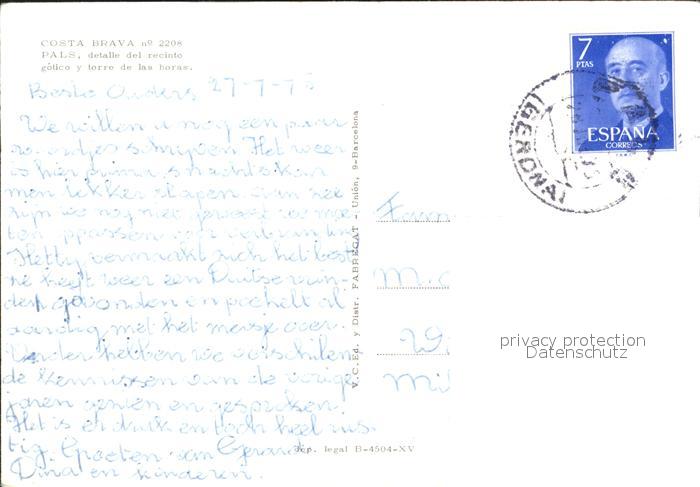 COSTA BRAVA nº 2208
PALS, detalle del recinto
gótico y torre de las horas.
Beste Ouders 27-7-75
We willen u nog een paar
woordjes schrijven. Het weer
is hier prima s'nachts kan
men lekker slapen. aan zee
zijn we nog niet geweest we moe
ten oppassen voor verbranding
Hetty vermaakt zich het best
ze heeft weer een Duitse vrien-
den gevonden en pochelt al
aardig met het meisje over.
Verder hebben we verschillen
de kennissen van de vorige
jaren gezien en gesproken.
Het is er druk en toch heel rus
tig. Groeten van Gerard
Dina en kinderen.
V.C.Ed. y Distr. FABREGAT - Unión, 9-Barcelona
Dep. legal B-4504-XV
7
PTAS
ESPAÑA
CORREOS
(GERONA)
Fam
M.
W
Mi
privacy protection
Datenschutz